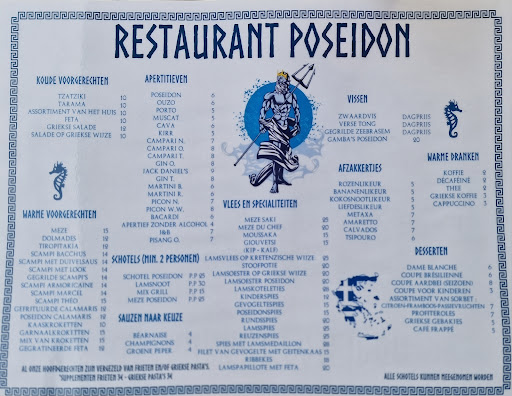 RESTAURANT POSEIDON
KOUDE VOORGERECHTEN
TZATZIKI 10
TARAMA 10
ASSORTIMENT VAN HET HUIS 12
FETA 10
GRIEKSE SALADE 12
SALADE OP GRIEKSE WIJZE 12
WARME VOORGERECHTEN
MEZE 15
DOLMADES
TIROPITAKIA
SCAMPI BACCHUS
SCAMPI MET DUIVELSAUS
SCAMPI MET LOOK
GEGRILDE SCAMPI'S
SCAMPI ARMORICAINE
SCAMPI MARCEL
SCAMPI THÉO
GEFRITUURDE CALAMARIS
POSEIDON CALAMARIS
KAASKROKETTEN
GARNAALKROKETTEN
MIX VAN KROKETTEN
GEGRATINEERDE FETA
APERTITIEVEN
POSEIDON 6
OUZO 6
PORTO 5
MUSCAT 5
CAVA 6
KIRR 5
CAMPARI N. 6
CAMPARI O. 7
CAMPARI T. 7
GIN O. 7
JACK DANIEL'S 9
GIN T. 8
MARTINI B. 6
MARTINI R. 6
PICON N. 7
PICON W.W. 8
BACARDI 6
APERTIEF ZONDER ALCOHOL 4
J&B 7
PISANG O. 7
SCHOTELS (MIN. 2 PERSONEN)
SCHOTEL POSEIDON P.P 25
LAMSNOOT P.P 25
MIX GRILL P.P 25
MEZE POSEIDON P.P 25
SAUZEN NAAR KEUZE
BEARNAISE 4
CHAMPIGNONS 4
GROENE PEPER 4
VLEES EN SPECIALITEITEN
MEZE SAKI
MEZE DU CHEF
MOUSSAKA
GIOUVETSI
(KIP - KALF)
LAMSVLEES OP KRETENZISCHE WIJZE
STOOFPOTJE
LAMSOESTER OP GRIEKSE WIJZE
LAMSOESTER POSEIDON
LAMSKOTELETJES
KINDERSPIES
GEVOGELTESPIES
POSEIDONSPIES
RUNDSSPIES
LAMSSPIES
REUZENSPIES
SPIES MET LAMSMEDAILLON
FILET VAN GEVOGELTE MET GEITENKAAS
RIBBEKES
LAMSPAPILLOTE MET FETA
VISSEN
ZWAARDVIS DAGPRIJS
VERSE TONG DAGPRIJS
GEGRILDE ZEEBRASEM DAGPRIJS
GAMBA'S POSEIDON 20
AFZAKKERTJES
ROZENLIKEUR 5
BANANENLIKEUR 5
KOKOSNOOTLIKEUR 5
LIEFDESLIKEUR 5
METAXA
AMARETTO
CALVADOS
TSIPOURO
WARME DRANKEN
KOFFIE 2
DECAFEINE 2
THEE 2
GRIEKSE KOFFIE 3
CAPPUCCINO 3
DESSERTEN
DAME BLANCHE 6
COUPE BRÉSILIENNE
COUPE AARDBEI (SEIZOEN) 8
COUPE VOOR KINDEREN
ASSORTIMENT VAN SORBET
CITROEN-FRAMBOOS-PASSIEVRUCHTEN
PROFITEROLES
GRIEKSE GEBAKJES
CAFE FRAPPÉ
AL ONZE HOOFDGERECHTEN ZIJN VERGEZELD VAN FRIETEN EN/OF GRIEKSE PASTA'S.
*SUPPLEMENTEN FRIETEN 3€ - GRIEKSE PASTA'S 3€
ALLE SCHOTELS KUNNEN MEEGENOMEN WORDEN